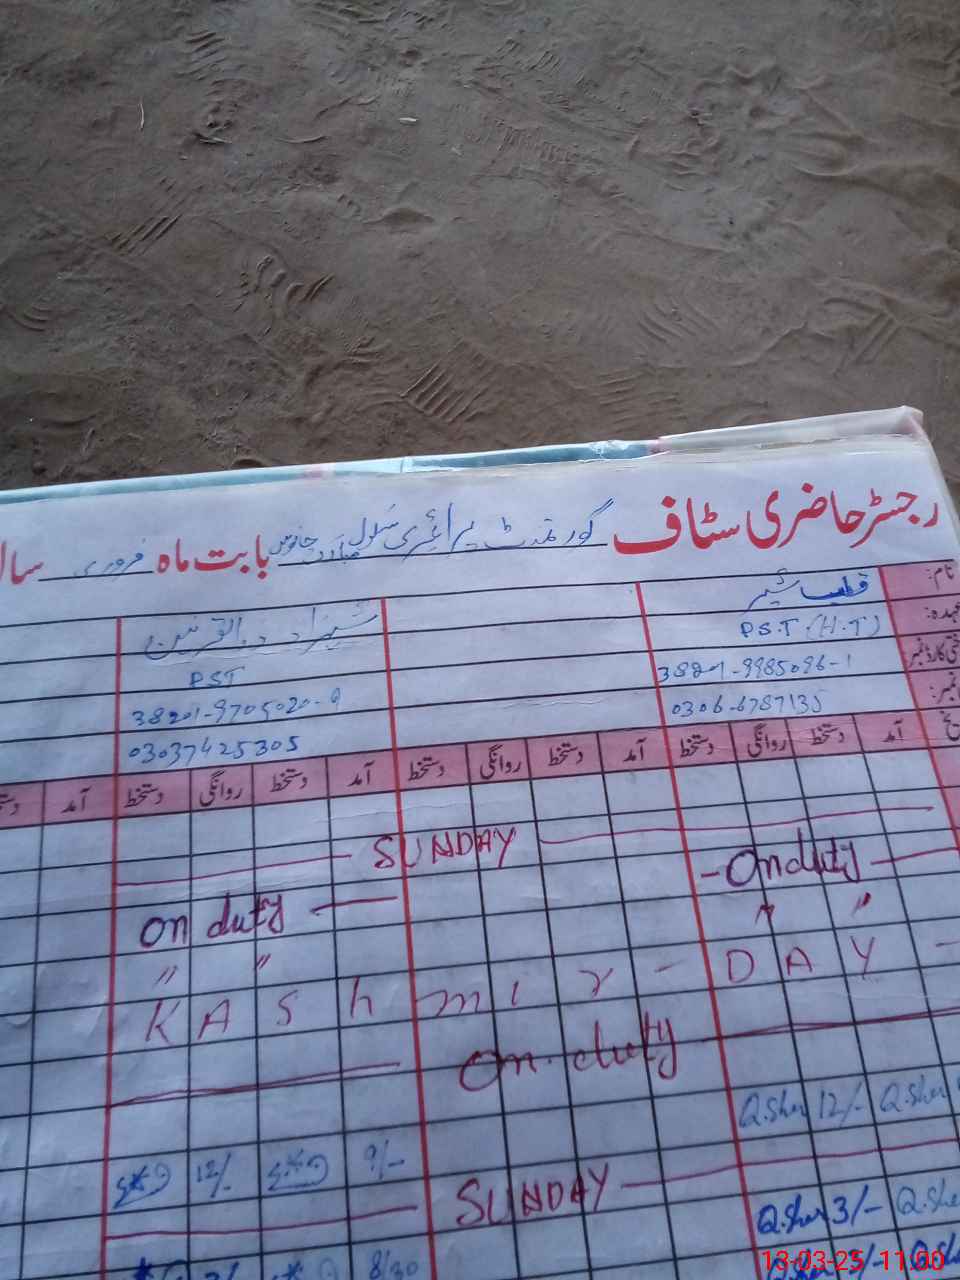 رجسٹر حاضری سٹاف گورنمنٹ پرائمری سکول بابت ماہ فروری سال
نام: قلب شیر شہزاد ذوالقرنین
عہدہ: P.S.T (H.T) PST
شناختی کارڈ نمبر 38201-9985096-1 38201-9705020-9
نمبر: 0306-6787135 03037425305
آمد دستخط روانگی دستخط آمد دستخط روانگی دستخط آمد دستخط روانگی دستخط آمد
SUNDAY
on duty On duty
" " " "
KASHmir - DAY -
on duty
Q.Sher 12/- Q.Sher
12/- 9/-
SUNDAY
Q.Sher 3/- Q.Sher
8/30
13-03-25 11:00